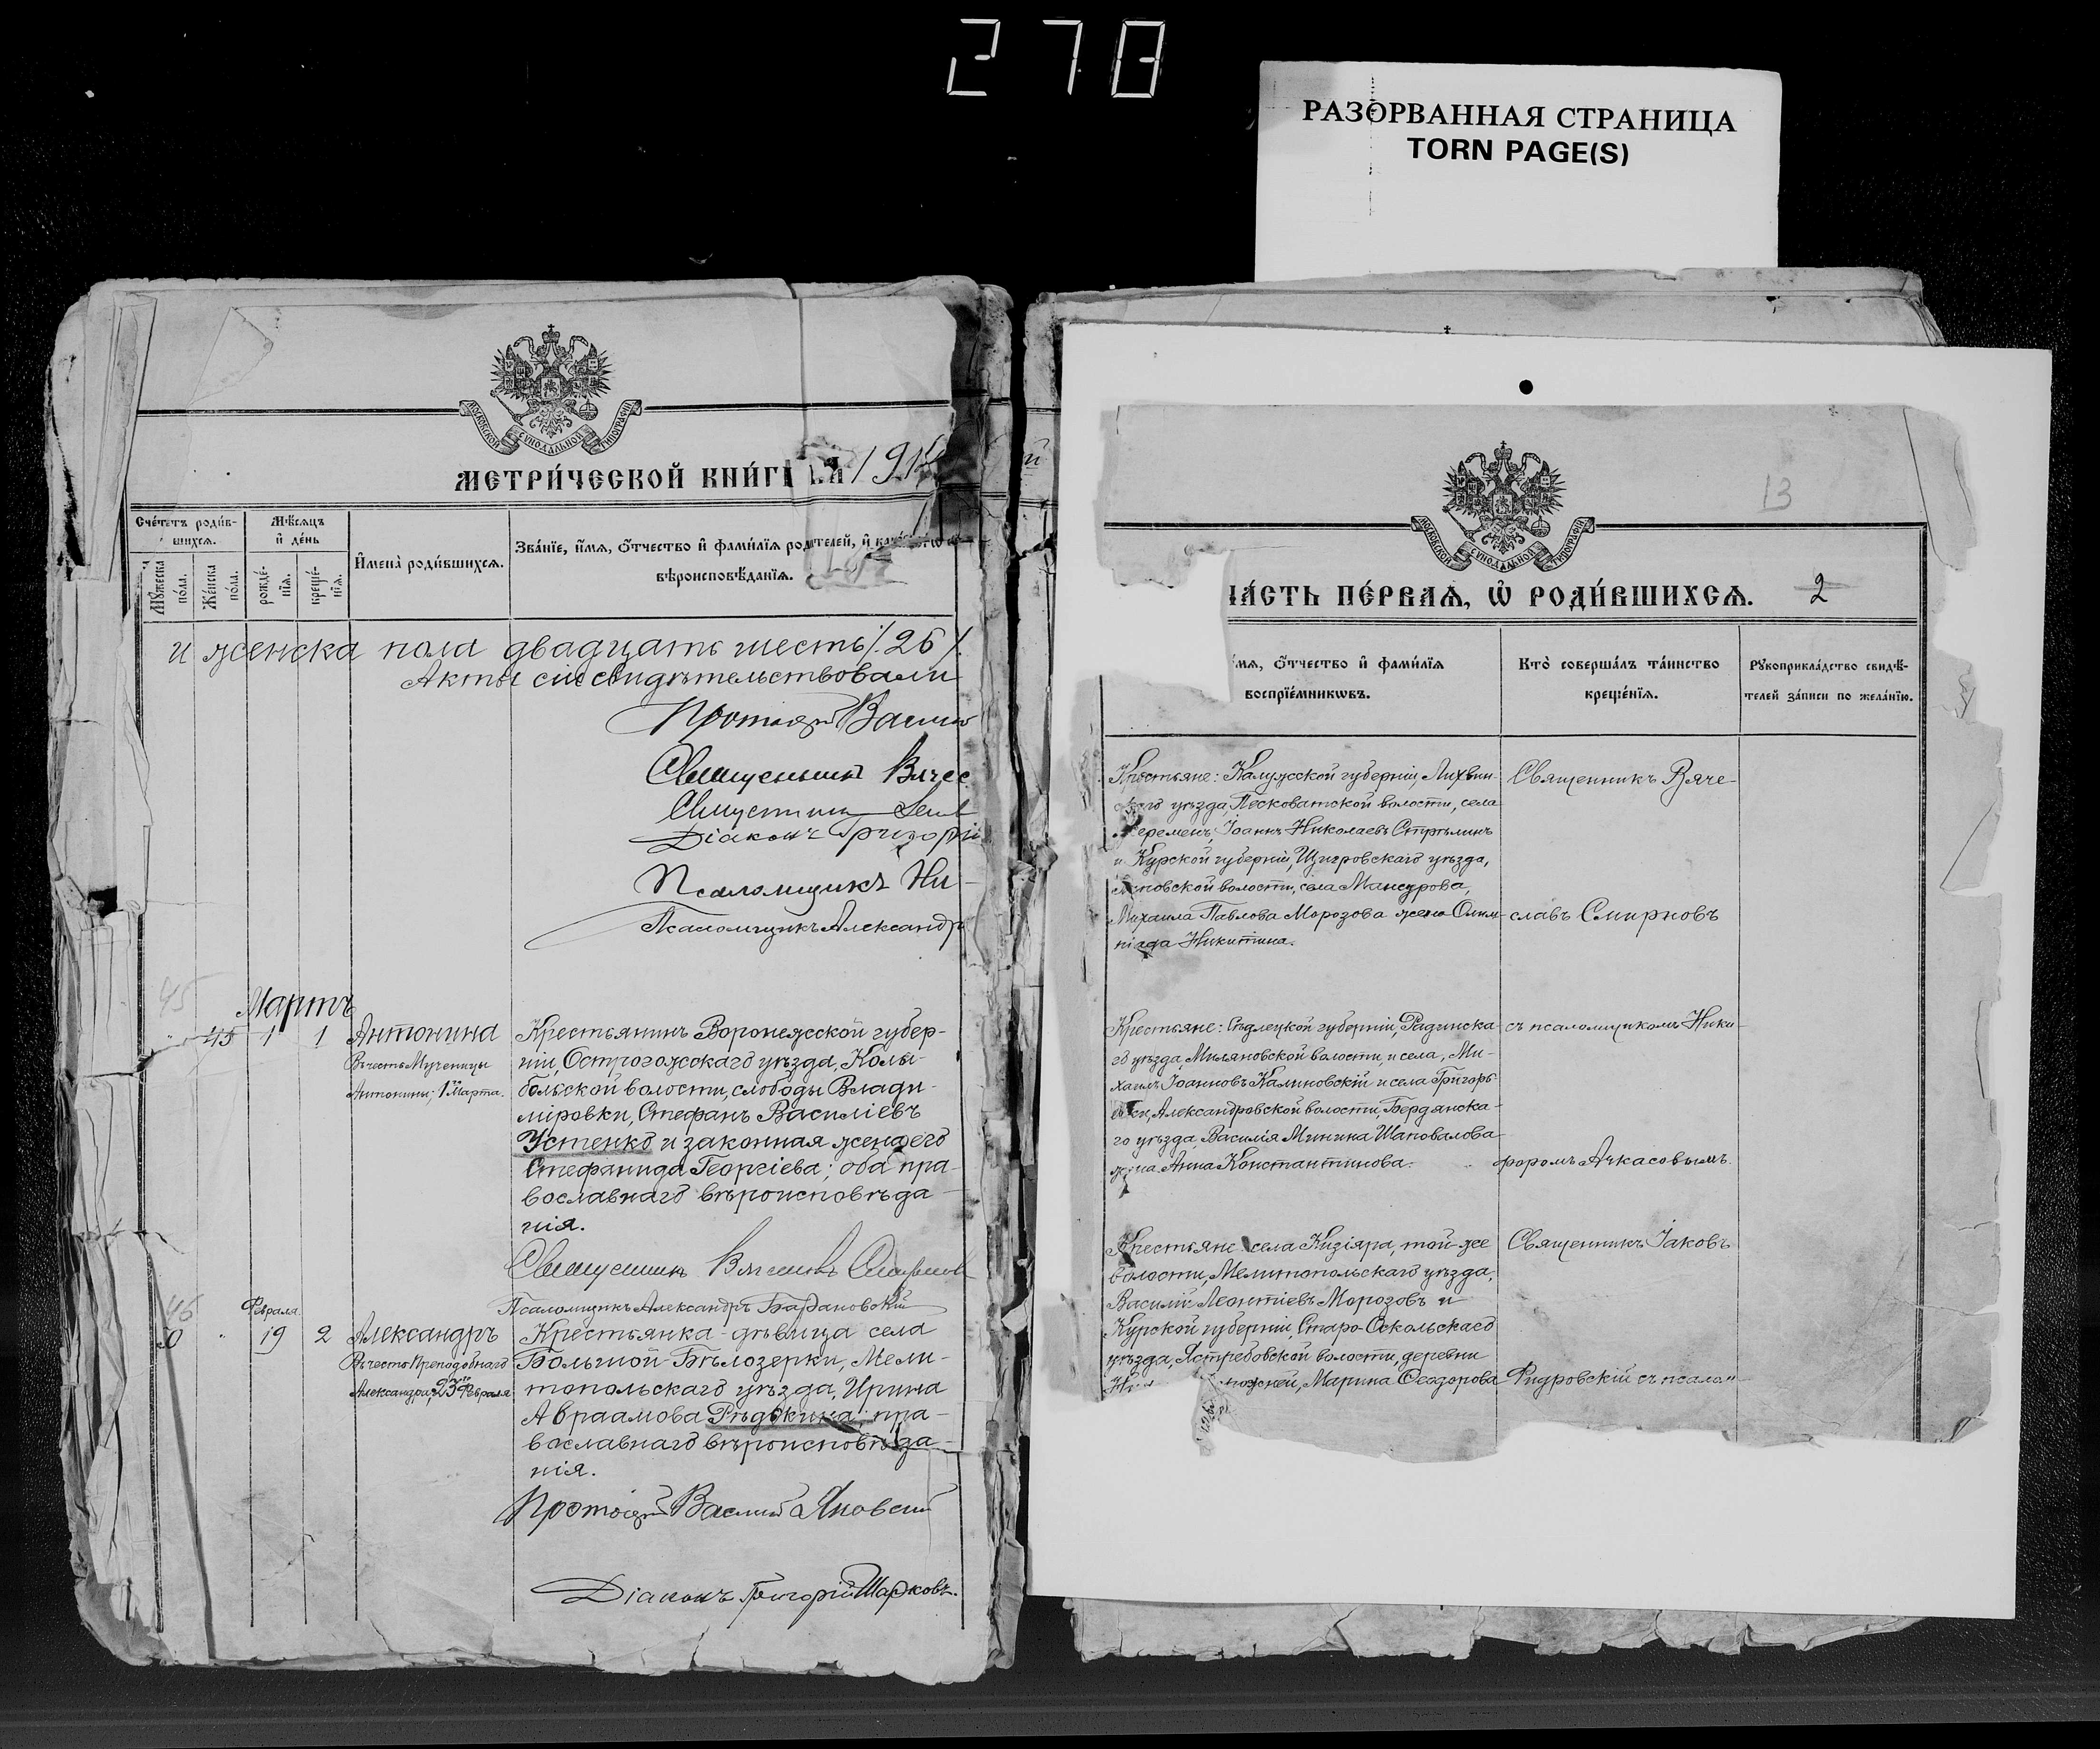 278
РАЗОРВАННАЯ СТРАНИЦА
TORN PAGE(S)
МОСКОВСКОЙ СѴНОДАЛЬНОЙ ТИПОГРАФІИ
МЕТРИ́ЧЕСКОЙ КНИ́ГИ НА 191
Сче́тъ роди́в-
шихсѧ.
Мѣ́сѧцъ
и҆ де́нь
Мꙋ́жеска
по́ла.
Же́нска
по́ла.
рожде́-
нїѧ.
креще́-
нїѧ.
И҆мена̀ роди́вшихсѧ.
Зва́нїе, и҆́мѧ, ѻ҆́тчество и҆ фами́лїѧ роди́телей, и҆ како́гѡ
вѣроисповѣ́данїѧ.
и женска пола двадцать шесть /.26/.
Акты сіи свидѣтельствовали
Протоіерей Василій
Священникъ Вячес
Священникъ
Діаконъ Григорій
Псаломщикъ Ни-
Псаломщикъ Александр
45
Мартъ
" 45 1 1 Антонина
Въ честь Мученицы
Антонины, 1го Марта.
Крестьянинъ Воронежской губер-
ніи, Острогожскаго уѣзда, Колы-
бельской волости, слободы Влади-
міровки, Стефанъ Василіевъ
Устенко и законная жена его
Стефанида Георгіева; оба пра-
вославнаго вѣроисповѣда-
нія.
Священникъ Вячеславъ Смирновъ
Псаломщикъ Александръ Барановскій
46
Февраля
19 2 Александръ
Въ честь Преподобнаго
Александра, 23го Февраля
Крестьянка-дѣвица села
Большой-Бѣлозерки, Мели-
топольскаго уѣзда, Ирина
Авраамова Рѣдькина; пра-
вославнаго вѣроисповѣда-
нія.
Протоіерей Василій Яновскій
Діаконъ Григорій Шарковъ.
13
МОСКОВСКОЙ СѴНОДАЛЬНОЙ ТИПОГРАФІИ
ЧА́СТЬ ПЕ́РВАѦ, Ѽ РОДИ́ВШИХСѦ. 2
и҆́мѧ, ѻ҆́тчество и҆ фами́лїѧ
воспрїе́мникѡвъ.
Кто̀ соверша́лъ та́инство
креще́нїѧ.
Рꙋкоприкла́дство свидѣ́-
телей за́писи по жела́нїю.
Крестьяне: Калужской губерніи, Лихвин-
скаго уѣзда, Песковатской волости, села
Черемень, Іоаннъ Николаевъ Стрѣлинъ
и Курской губерніи, Щигровскаго уѣзда,
волости, села Мансурова,
Михаила Павлова Морозова жена Олим-
піада Никитина.
Священникъ Вяче-
славъ Смирновъ
Крестьяне: Сѣдлецкой губерніи, Радинска-
го уѣзда, Миляновской волости, и села, Ми-
хаилъ Іоанновъ Калиновскій и села Григорь-
евки, Александровской волости, Бердянска-
го уѣзда, Василія Минина Шаповалова
жена Анна Константинова.
съ псаломщикомъ Ники-
форомъ Ачкасовымъ.
Крестьяне: села Кизіяра, той-же
волости, Мелитопольскаго уѣзда,
Василій Леонтіевъ Морозовъ и
Курской губерніи, Старо-Оскольскаго
уѣзда, Ястребовской волости, деревни
Марина Ѳеодорова
Священникъ Іаковъ
Фидровскій съ псалом-